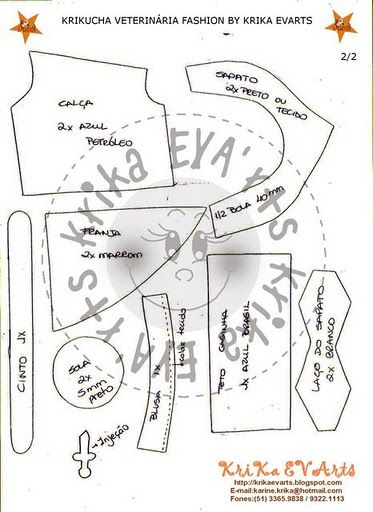 KRIKUCHA VETERINÁRIA FASHION BY KRIKA EVARTS
2/2
CALÇA
2x AZUL
PETRÓLEO
SAPATO
2x PRETO OU
TECIDO
1/2 BOLA 40mm
FRANJA
2x MARROM
CINTO 1x
SOLA
2x
5mm
PRETO
BLUSA 1x
TETO CASINHA
1x AZUL BRASIL
LAÇO DO SAPATO
2x BRANCO
Injeção
Krika EVA'rts Krika EVA'rts
KriKa EVArts
http://krikaevarts.blogspot.com
E-mail:karine.krika@hotmail.com
Fones:(51) 3365.9838 / 9322.1113